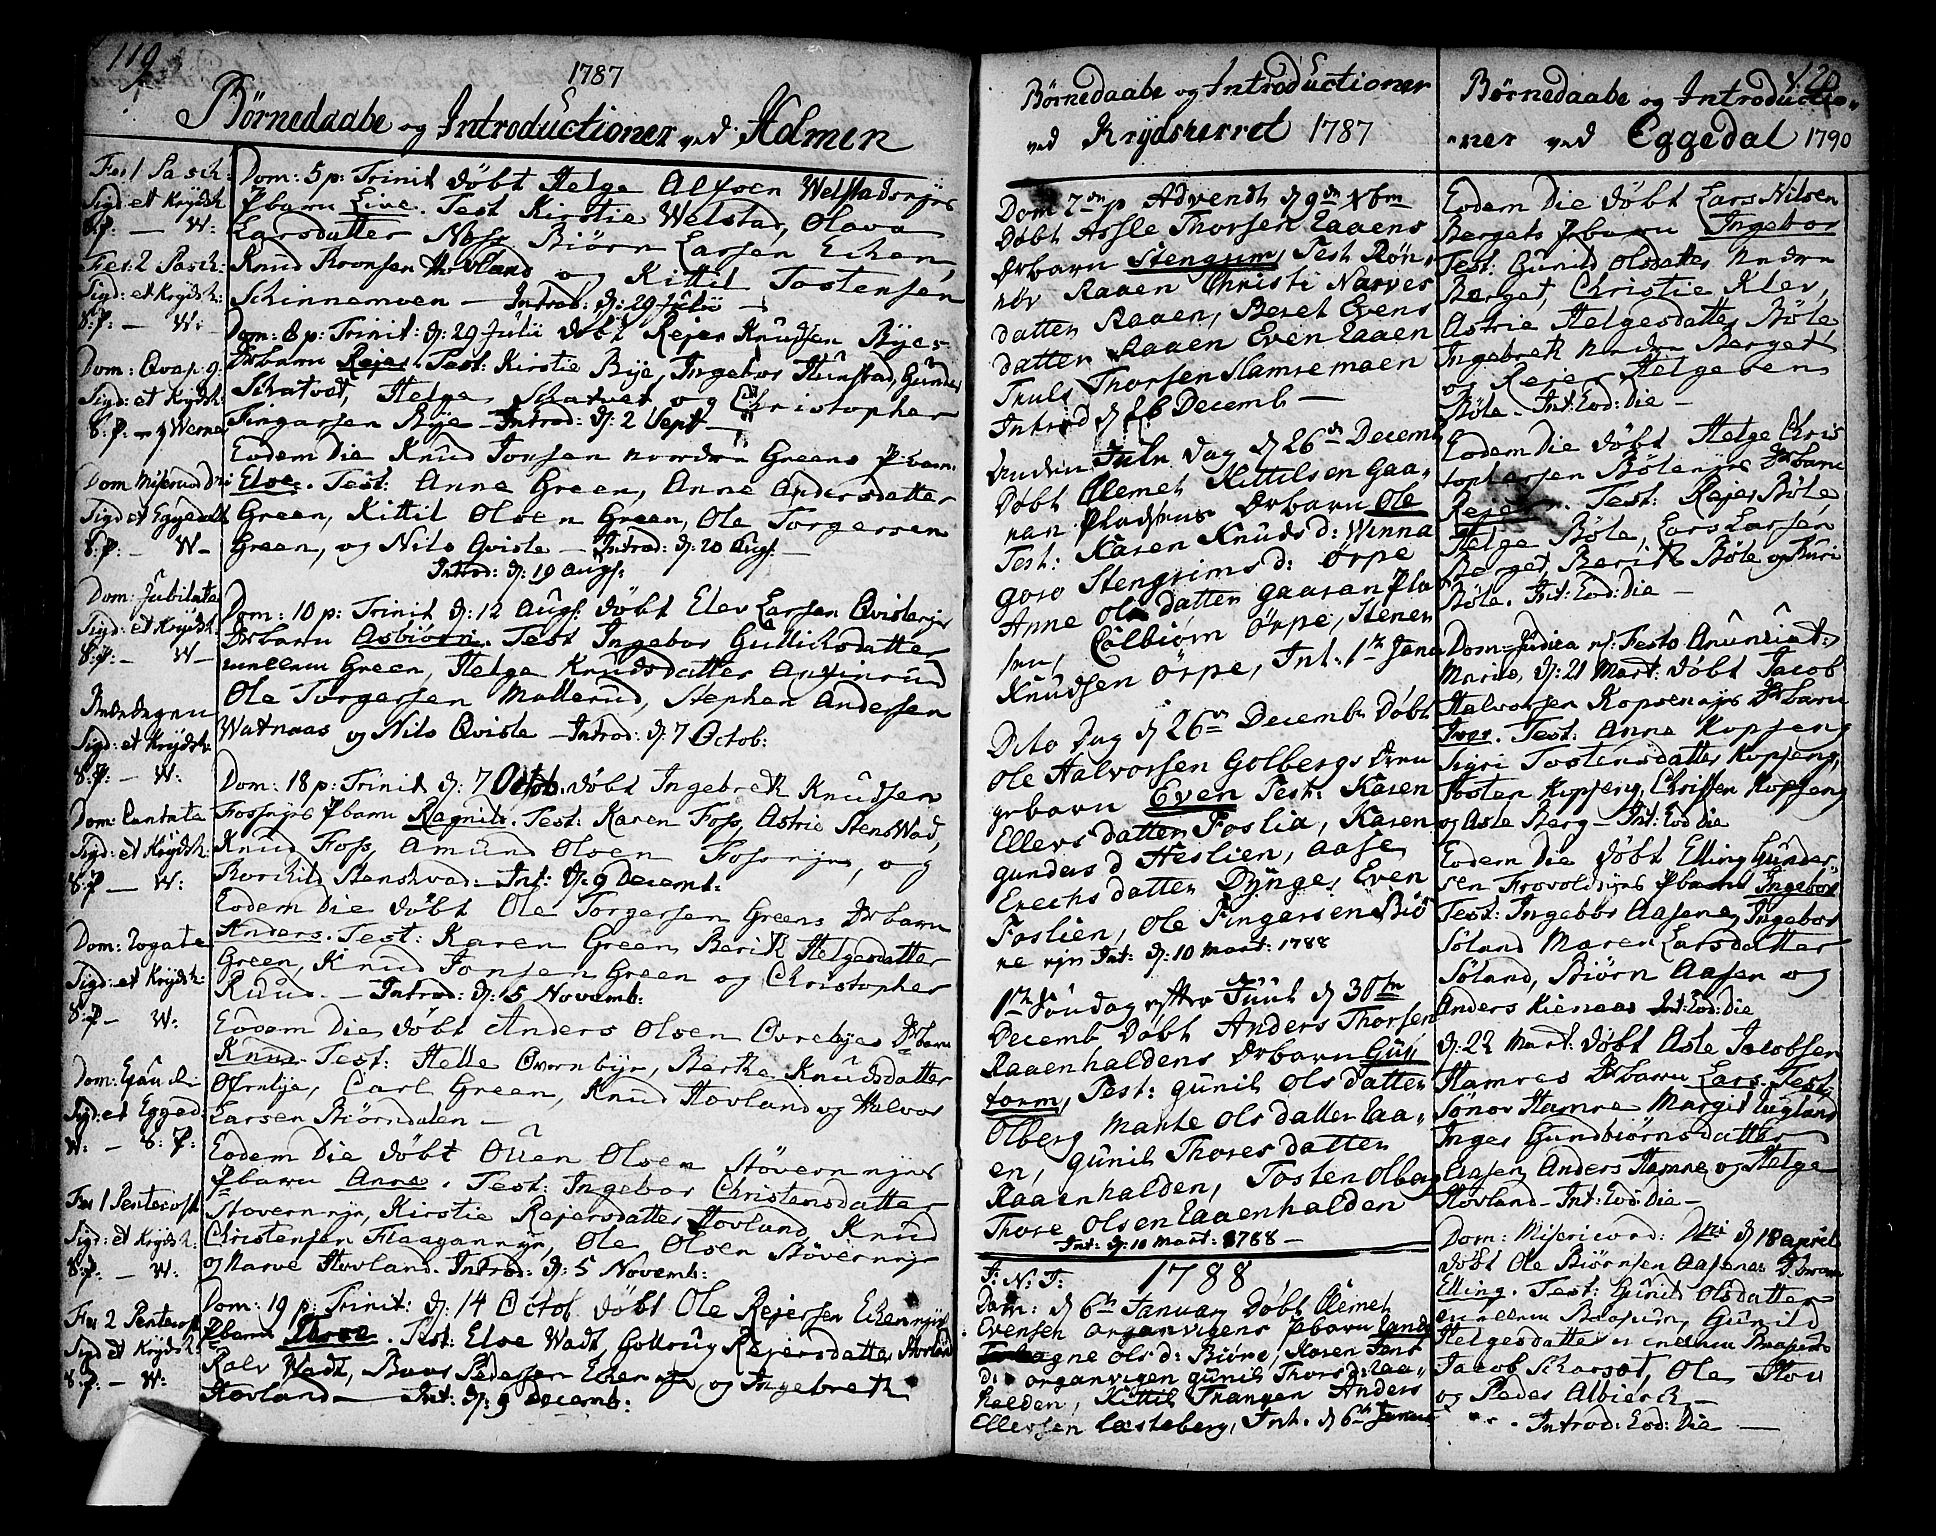 119
1787
Børnedaabe og Introductioner ved Holmen
Fer 1 Pasch:
Sigd: et Krydsh:
S:P: — W:
Fer: 2 Pasch:
Sigd: et Krydsh:
S:P: — W:
Dom: Qvas: g:
Sigd: et Krydsh:
S:P: — Werne
Dom Misericordi
Sigd et Eggedal
S:P: — W—
Dom: Jubilate
Sigd: et Krydsh:
S:P: — W—
Bededagen
Sigd: et Krydsh:
S:P: — W:
Dom: Cantate
Sigd: et Krydsh:
S:P — W:
Dom: Rogate
Sigd: et Krydsh:
S:P — W:
Dom: Exaudi
Sigd: et Egged:
W: — S:P:
Fer 1 Pentecost
Sigd: et Krydsh:
S:P: — W:
Fer 2 Pentecost
Sigd et Krydsh:
S:P: — W:
Dom: 5 p: Trinit døbt Helge Alfsen Welstadsnyes
Pbarn Live. Test Kirstie Welstad, Olava
Larsdatter Ness Biørn Larsen Eken,
Knud Hovland og Kittil Tostensen
Schinnemoen — Introd: d: 29 Julii —
Dom: 8 p: Trinit: d: 29 Julii døbt Rejer Knudsen Byes
Drbarn Rejer. Test: Kirstie Bye, Ingebor Hunstad, Gunder
Schatvet, Helge Schatvet og Christopher
Fingarsen Bye — Introd: d: 2 Sept —
Eodem Die Knud Jonsen nordre Greens Pbarn
Eloe. Test: Anne Green, Anne Andersdatter
Green, Kittil Olsen Green, Ole Torgersen
Green, og Nils Qvisle — Introd: d: 20 Aug:
Introd: d: 19 Augs:
Dom: 10 p: Trinit d: 12 Augs: døbt Elev Larsen Qvislenyes
Drbarn Asbiørn. Test Ingebor Gullichsdatter
mellem Green, Helge Knudsdatter
Ole Torgersen Mallerud, Stephen Andersen
Watnaas og Nils Qvisle — Introd: d: 7 Octob:
Dom: 18 p: Trinit: d: 7 Octob. døbt Ingebrek Knudsen
Fossnyes Pbarn Ragnild. Test: Karen Foss, Astrie Stenswad,
Knud Foss, Amund Olsen Fossnye, og
Stenshvad — Int: d: 9 Decemb:
Eodem Die døbt Ole Torgersen Greens Drbarn
Anders. Test: Karen Green Berit Helgesdatter
Green, Knud Jonsen Green og Christopher
Ruud. — Introd: d: 5 Novemb:
Eodem Die døbt Anders Olsen Ovrebyes Drbarn
Knud. Test: Helle Overnbye, Berthe Knudsdatter
Ofrnbye, Carl Green, Knud Hovland og Halvor
Larsen Biørndalen —
Eodem Die døbt Ouen Olsen Støvernnyes
Pbarn Anne. Test: Ingebor Christensdatter
Støvernnye, Kirstie Rejersdatter Hovland, Knud
Christensen Flaagannye, Ole Olsen Støvernnye
og Narve Hovland. Introd: d: 5 Novemb:
Dom: 19 p: Trinit: d: 14 Octob. døbt Ole Rejersen Ekernnyes
Pbarn Test: Eloe Wadt, Gollaug Rejersdatter Hovland
Rolv Wadt, Peder Ekern og Ingebreth
Hovland — Int: d: 9 Decemb:
Børnedaabe og Introductioner
ved Krydsherret 1787
Dom 2den p Advendt d 9de Xbr
Døbt Assle Thorsen Raaens
Drbarn Stengrim, Test Røn-
nøv Raaen Christi Narves
datter Raaen, Beret Evens
datter Raaen Even Raaen
Truls Thorsen Hamremoen
Introd d 26 Decemb —
Anden Jule Dag d 26de Decemb
Døbt Clemet Kittilsen Gaa-
ran Pladsens Drbarn Ole
Test: Karen Knudsd: Winna
goro Stengrimsd: Ørpe
Anne Olsdatter Gaaran Pla
sen, Colbiørn Ørpe, Stener
Knudsen Ørpe, Int: 1te Janu
Dito Dag d 26de Decemb Døbt
Ole Halvorsen Golbergs
Drbarn Even Test: Karen
Ellersdatter Foslia, Karen
Gundersd Heslien, Aase
Erechsdatter Dynge, Even
Foslien, Ole Fingarsen Biø
re nye Int: d: 10 Mart: 1788
1te Søndag efter Juul d 30te
Decemb Døbt Anders Thorsen
Raaenhaldens Drbarn Gull
torm, Test: Gunil Olsdatter
Olberg Marte Olsdatter Raa-
en, Gunil Thoresdatter
Raaenhalden, Tosten Olberg
Thore Olsen Raaenhalden
Int: d: 10 Mart: 1788 —
I: N: J: 1788
Dom: d 6te Januar Døbt Clemet
Evensen Organvigens Pbarn Randi
Test Aagne Olsd: Biøre, Karen Jens
d: Organvigen Gunil Thorsd: Raa-
halden, Kittil Trangen Anders
Ellersen Casteberg, Int. d 6te Januar
120
Børnedaabe og Introductio-
ner ved Eggedal 1790
Eodem Die døbt Lars Nilsen
Bergets Pbarn Ingebor
Test: Gunild Olsdatter Nedre
Berget, Christie Klev,
Astrie Helgesdatter Bøle
Ingebrek Nedre Berget
og Rejer Helgesen
Bøle. Int: Eod: Die —
Eodem Die døbt Helge Chris
tophersen Bølenyes Drbarn
Rejer. Test: Rejer Bøle
Helge Bøle, Lars Larsen
Berget, Berit Bøle og Guri
Bøle. Int: Eod: Die —
Dom: Judica el: Festo Anunciat:
Mariæ, d: 21 Mart: døbt Jacob
Halvorsen Kopsengs Drbarn
Iver. Test: Anne Kopseng
Sigri Tostensdatter Kopseng,
Tosten Kopseng, Christen Kopseng
og Asle Berg — Int: Eod Die
Eodem Die døbt Elling Gunder-
sen Frovoldnyes Pbarn Ingebor
Test: Ingebor Aasene, Ingebor
Søland Maren Larsdatter
Søland, Biørn Aasen og
Anders Kienaas Int: Eod: Die
d: 22 Mart: døbt Asle Jacobsen
Hamres Drbarn Lars. Test:
Sønov Hamre Margit Lugland
Inger Gundbiørnsdatter
Aasen, Anders Hamre og Helge
Hovland — Int: Eod: Die —
Dom: Misericord: Dni d 18 April
døbt Ole Biørnsen Aasenes Drbarn
Elling. Test: Gunild Olsdatter
mellem Braaten, Gunild
Helgesdatter mellem Braaten
Jacob Scharset, Ole Hov
og Peder Albierk —
Introd: Eod: Die —